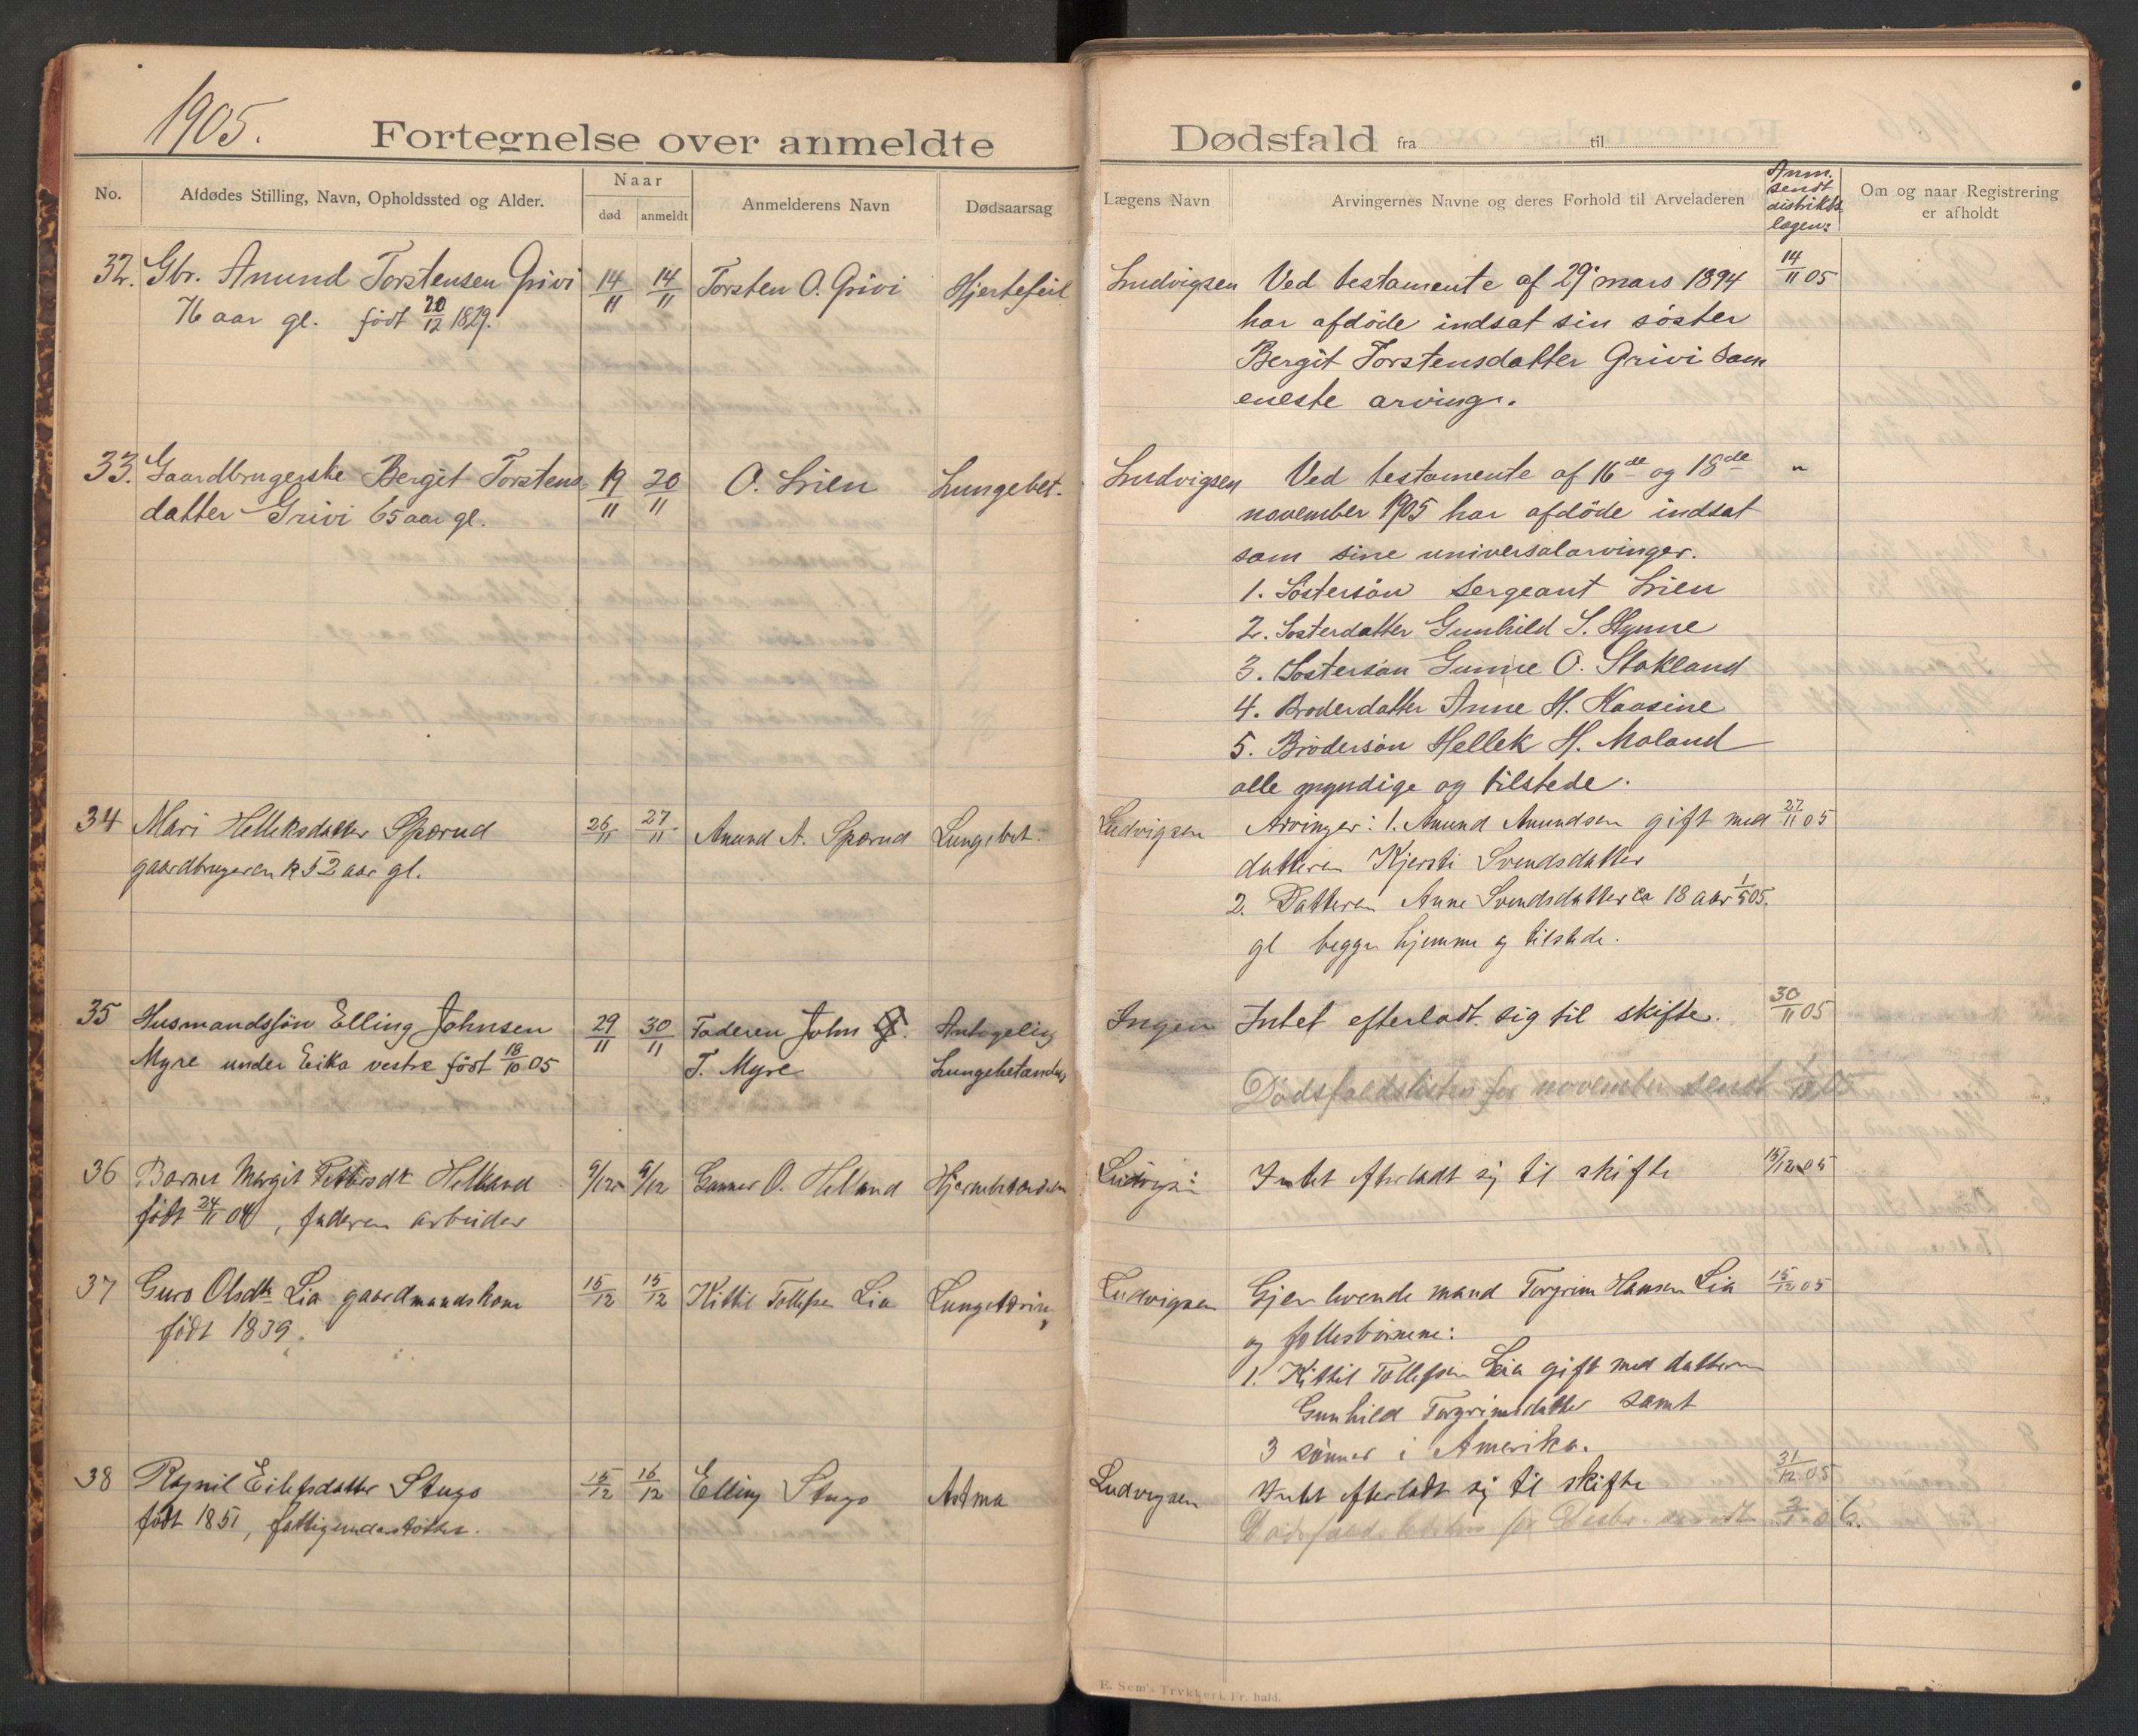 1905.
Fortegnelse over anmeldte
Dødsfald fra til
No.
Afdødes Stilling, Navn, Opholdssted og Alder.
Naar
død
anmeldt
Anmelderens Navn
Dødsaarsag
Lægens Navn
Arvingernes Navne og deres Forhold til Arveladeren
Anm.
sendt
distrikts
lægen:
Om og naar Registrering
er afholdt
32. Gbr. Anund Torstensen Grivi 14/11 14/11 Torsten O. Grivi Hjertefeil Ludvigsen Ved testamente af 29. mars 1894 14/11 05
76 aar gl. födt 20/12 1829. har afdöde indsat sin söster
Bergit Torstensdatter Grivi som
eneste arving.
33. Gaardbrugerske Bergit Torstens 19/11 20/11 O. Lien Lungebet. Ludvigsen Ved testamente af 16de og 18de "
datter Grivi 65 aar gl. november 1905 har afdöde indsat
som sine universalarvinger.
1. Söstersön sergeant Lien
2. Sösterdatter Gunhild S. Hynne
3. Söstersön Gunne O. Stokland
4. Broderdatter Anne H. Kaasine
5. Brödersön Hellek H. Moland
alle myndige og tilstede.
34 Mari Helleksdatter Spærud 26/11 27/11 Anund A. Spærud Lungebet. Ludvigsen Arvinger: 1. Anund Anundsen gift med 27/11 05
gaardbruger 52 aar gl. datteren Kjersti Svendsdatter
2. Datteren Anne Svendsdatter ca 18 aar 1/5 05.
gl begge hjemme og tilstede.
35 Husmandssön Elling Johnsen 29/11 30/11 Faderen John Antagelig Ingen Intet efterladt sig til skifte. 30/11 05
Myre under Eika vestre födt 18/10 05 T. Myre Lungebetændels
Dödsfaldslisten for november sendt 1/12 05
36 Barnet Margit Pettersdt Helland 9/12 9/12 Gunner O. Helland Hjernebetændelse Ludvigs: Intet efterladt sig til skifte 15/12 05
födt 24/11 04, faderen arbeider
37 Guro Olsdtr Lia gaardmandskone 15/12 15/12 Kittil Tollefsen Lia Lungetæring Ludvigsen Gjenlevende mand Torgrim Hansen Lia 15/12 05
födt 1839. og fellesbörnene:
1. Kittil Tollefsen Lia gift med datteren
Gunhild Torgrimsdatter samt
3 sönner i Amerika.
38 Ragnil Eilefsdatter Stugo 15/12 16/12 Elling Stugo Astma Ludvigsen Intet efterladt sig til skifte 31/12 05
födt 1851, fattigunderstöttet. Dödsfaldslisten for Desbr. sendt 3/1 06.
E. Sem's Trykkeri, Fr.hald.